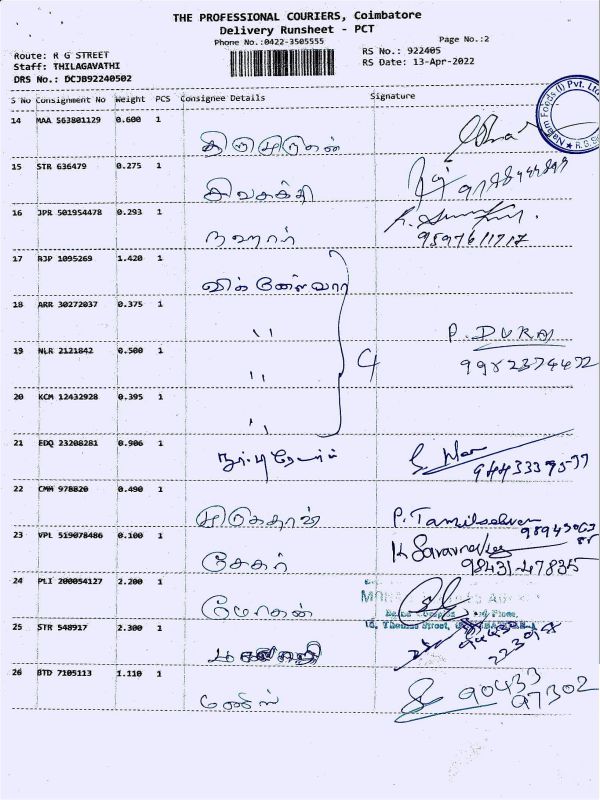 THE PROFESSIONAL COURIERS, Coimbatore
Delivery Runsheet - PCT
Phone No.:0422-3505555
Page No.:2
Route: R G STREET
RS No.: 922405
Staff: THILAGAVATHI
RS Date: 13-Apr-2022
DRS No.: DCJB92240502
S No Consignment No Weight PCS Consignee Details Signature
Nalam Foods (I) Pvt. Ltd
14 MAA 563801129 0.600 1
திருமுருகன்
15 STR 636479 0.275 1
சிவசக்தி
16 JPR 501954478 0.293 1
நஹார்
9597611717
17 RJP 1095269 1.420 1
18 ARR 30272037 0.375 1
,, P. DURAI
19 NLR 2121842 0.500 1
,, 4
20 KCM 12432928 0.395 1
,,
21 EDQ 23208281 0.906 1
22 CMM 978820 0.490 1
P. Tamilselvan
23 VPL 519078486 0.100 1
சேகர்
K Saravana
98431-47835
24 PLI 200054127 2.200 1
மோகன்
10, Thomas Street,
25 STR 548917 2.300 1
26 BTD 7105113 1.110 1
மணிஸ்
90433
97302